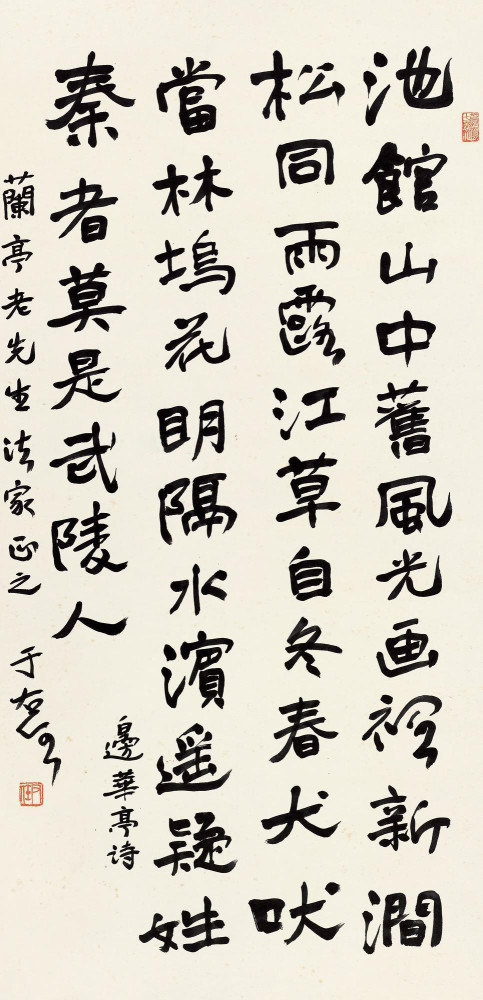 池館山中舊風光画裡新澗
松同雨露江草自冬春犬吠
當林塢花明隔水濱遥疑姓
秦者莫是武陵人
邊華亭诗
蘭亭老先生法家正之
于右任